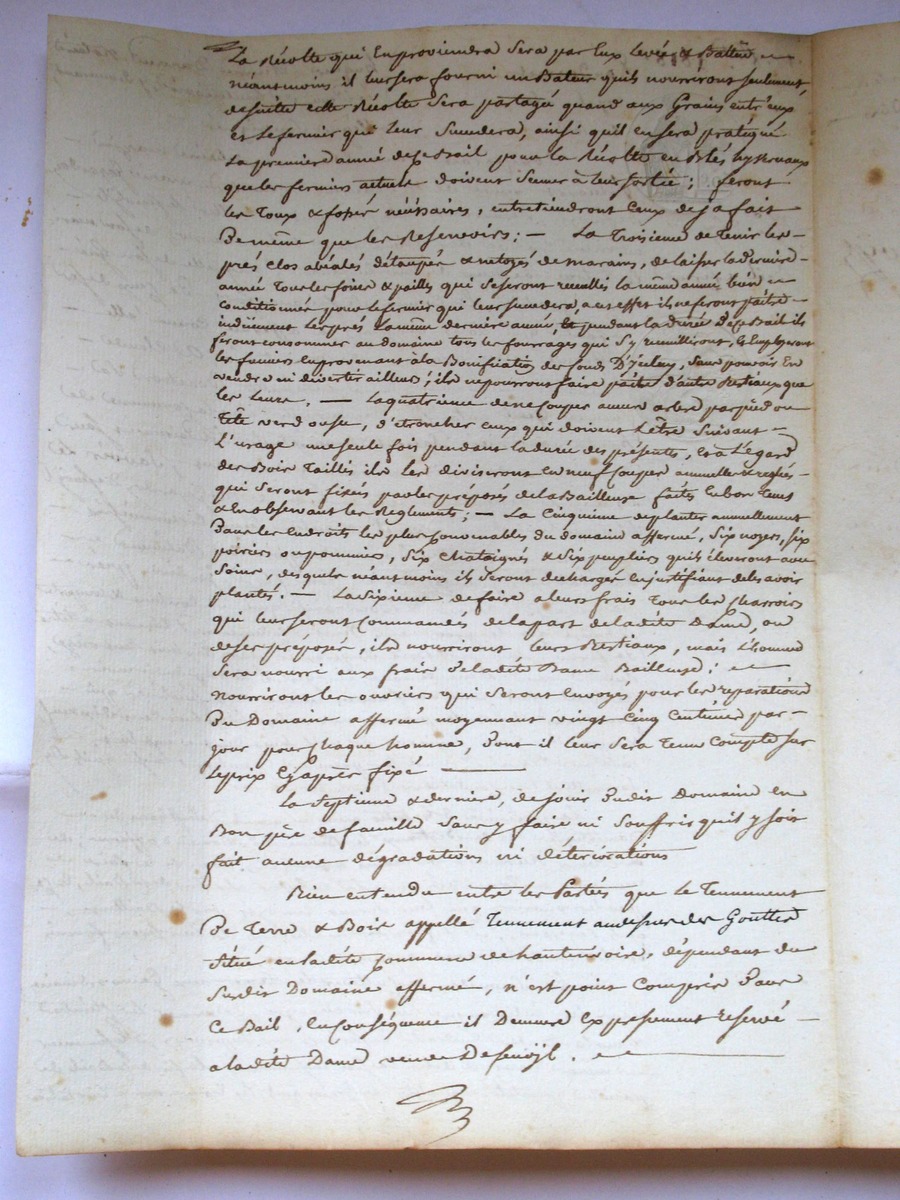 La Récolte qui En proviendra Sera par Eux Levée & Battue
néantmoins il leur sera fourni un Bateur quils nourriront seulement,
desuitte cette Récolte Sera partagée quand aux Grains entr'eux
et Le fermier qui leur Succedera, ainsi quil en sera pratiqué
La premierre année de ce Bail pour la Récolte en Blés hyvernaux
que les fermiers actuels doivent Semer à leur sortie; feront
les Toux & fossés nécéssaires, entretiendront Ceux deja fait
De même que les Reservoirs; — La Troisieme de Tenir les
prés clos abéalés détaupés & netoyés de marains, de laisser la derniere
année Tous les foins & pailles qui Se seront recueillis la même année bien
conditionnés pour le fermier qui leur succedera, a cet effet ils ne feront paitre
induement les prés La même derniere année, Et pendant la durée de ce Bail ils
feront consommer au domaine tous les fourrages qui S'y recueilliront, Et Employeront
les fumiers En provenant à la Bonification des fonds D'Yceluy, Sans pouvoir En
vendre ni divertir ailleurs; ils ne pourront faire paitre d'autres Bestiaux que
les Leurs. — La quatrieme de ne Couper aucun arbre par pied ou
Tête verd ou sec, d'étroncher ceux qui doivent L'être Suivant
L'usage une seule fois pendant la durée des présentes, Et à L'égard
des Bois Taillis ils les diviseront en neuf Coupes annuelles & reglées
qui Seront fixées par les préposés de la Bailleuse faites En bon Tems
& En observant les Reglements; — La Cinquieme de planter annuellement
Dans les Endroits les plus Convenables du domaine affermé, Six noyers, six
poiriers ou pommiers, Six Chataignés & Six peupliers quils éleveront avec
Soins, desquels néantmoins ils Seront dechargés En justifiant de les avoir
plantés. — La Sixieme de faire a leurs frais Tous les Charrois
qui leur Seront Commandés de la part de la dite Dame, ou
de ses préposés, ils nourriront leurs Bestiaux, mais L'homme
Sera nourri aux frais De la dite Dame Bailleuse;
nourriront les ouvriers qui Seront Envoyés pour les réparations
Du Domaine affermé moyennant vingt Cinq Centimes par
jour pour Chaque homme, Dont il leur Sera Tenu Compte sur
Le prix Cy après fixé
La Septieme & derniere, de jouir Dudit Domaine en
Bon père de famille Sans y faire ni Souffrir quil y soit
fait aucunes dégradations ni détériorations
Bien entendu entre les Parties que le Tennement
De Terre & Bois appellé Tennement au dessus des Gouttes
Situé en la dite Commune de hauterivoire, dépendant du
Susdit Domaine affermé, n'est point Compris Dans
Ce Bail, En Conséquence il Demeure Expressement reservé
a la dite Dame veuve